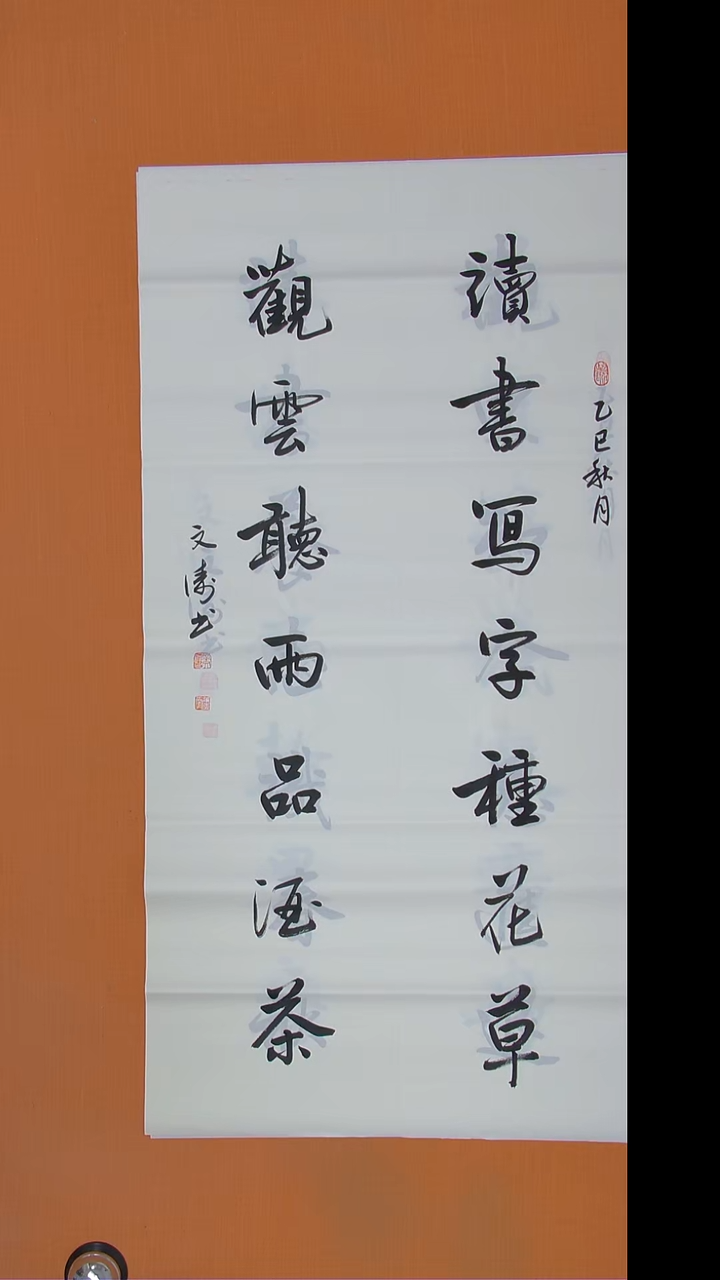 乙巳秋月
讀書寫字種花草
觀雲聽雨品酒茶
文濤书